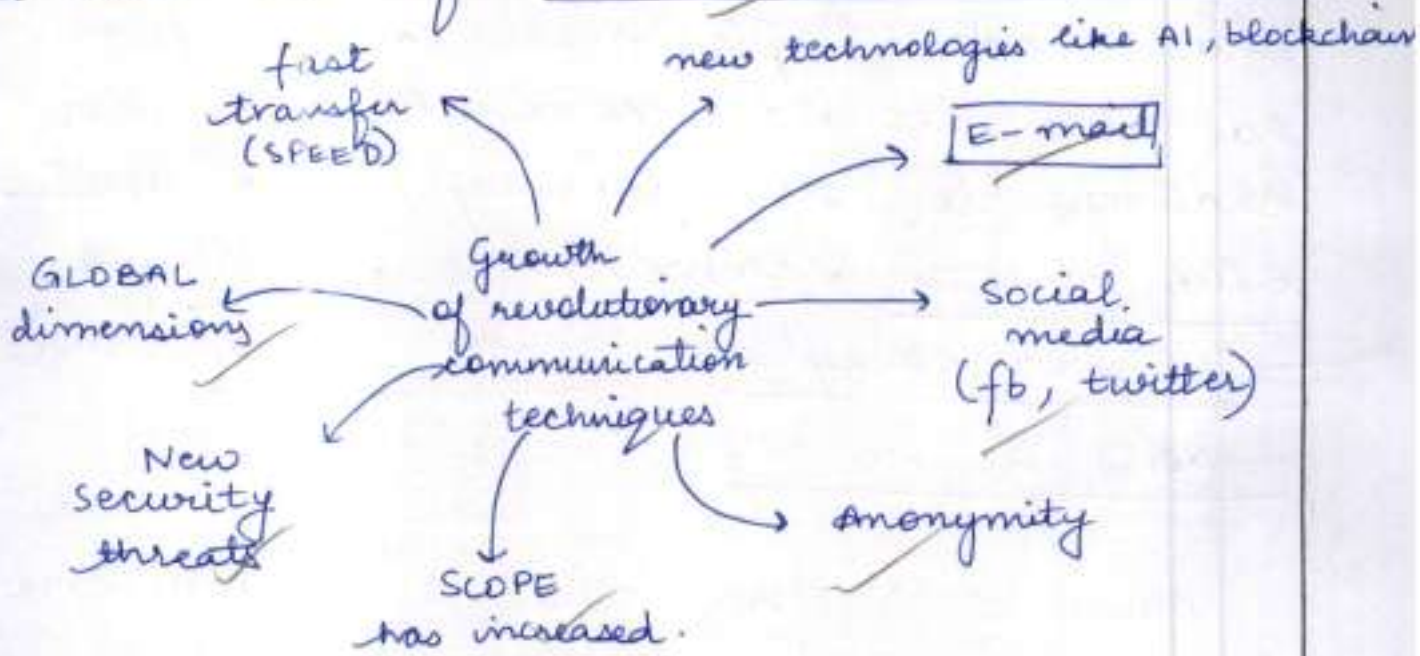 fast
transfer
(SPEED)
new technologies like AI, blockchain
E-mail
GLOBAL
dimensions
Growth
of revolutionary
communication
techniques
Social
media
(fb, twitter)
New
Security
threats
SCOPE
has increased.
Anonymity